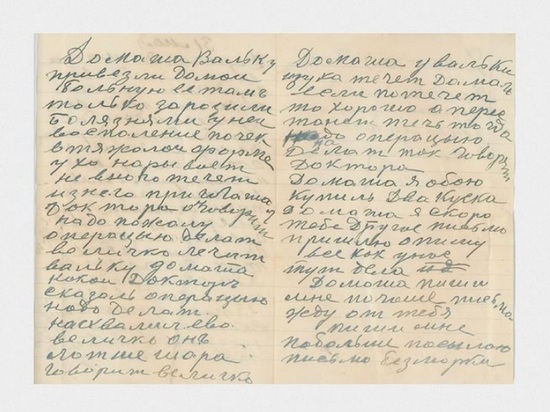 Домаша Вальку
привезли домой
больную ее тамъ
только заразили
болязнями у ней
воспаление почек
в тяжолой форме
ухо нарываетъ
не много течет
из него приглашал
доктора он говорит
надо пожалу
операцыю делат
величко лечит
вальку домаша
какой доктор
сказалъ операцыю
надо делат.
нахваличево
величко онъ
лотше шара
говорит величко
Домаша у вальки
из уха течет Дамаша
если потечет
то хорошо а пере
танет течь тогда
надо на операцыю
делат так говорят
доктора
Домаша я обою
купилъ два куска
Домаша я скоро
тебе другое письмо
пришлю опишу
все как у нас
тут дела
Домаша пиши
мне почаше письма
жду от тебя
пиши мне
побольши посылаю
письмо без марки